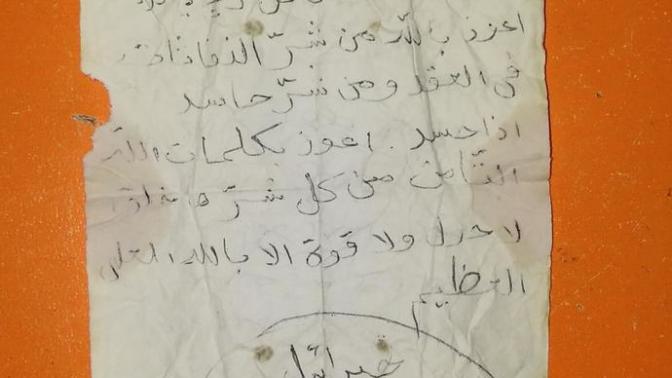 اعوذ بالله من شرّ النفاثات
في العقد ومن شرّ حاسد
اذا حسد . اعوذ بكلمات الله
من كل شرّ
لا حول ولا قوة الا بالله العلي
العظيم